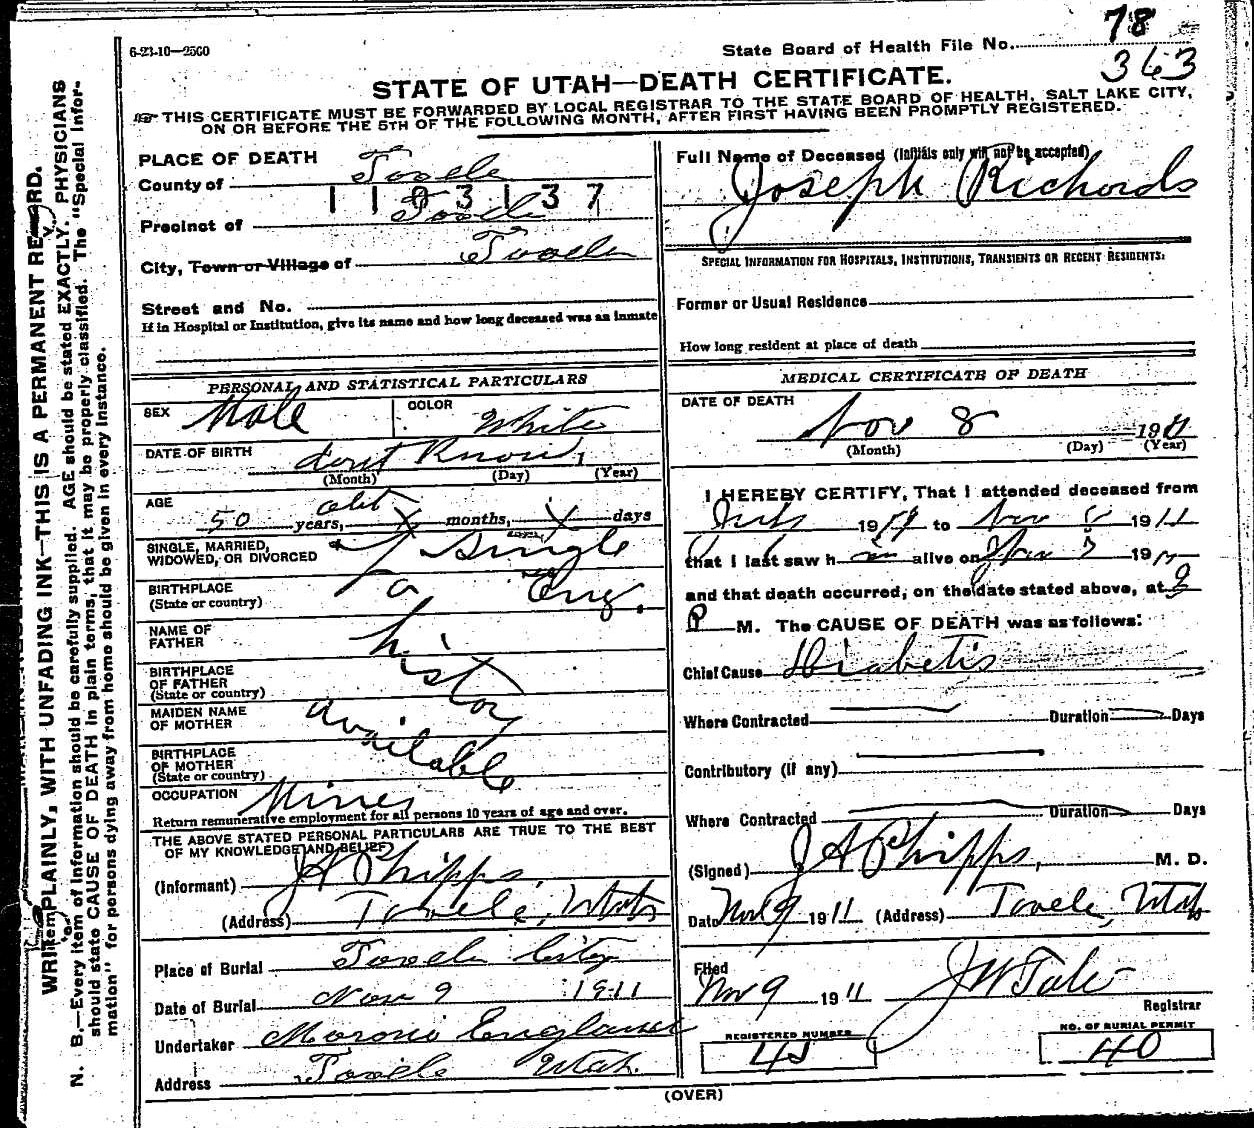 78
6-23-10—2500
State Board of Health File No.
363
STATE OF UTAH—DEATH CERTIFICATE.
THIS CERTIFICATE MUST BE FORWARDED BY LOCAL REGISTRAR TO THE STATE BOARD OF HEALTH, SALT LAKE CITY,
ON OR BEFORE THE 5TH OF THE FOLLOWING MONTH, AFTER FIRST HAVING BEEN PROMPTLY REGISTERED.
PLACE OF DEATH
County of Tooele
1103137
Precinct of Tooele
City, Town or Village of Tooele
Street and No.
If in Hospital or Institution, give its name and how long deceased was an inmate
Full Name of Deceased (Initials only will not be accepted)
Joseph Richards
SPECIAL INFORMATION FOR HOSPITALS, INSTITUTIONS, TRANSIENTS OR RECENT RESIDENTS:
Former or Usual Residence
How long resident at place of death
PERSONAL AND STATISTICAL PARTICULARS
SEX Male COLOR White
DATE OF BIRTH dont Know 1
(Month) (Day) (Year)
AGE abt
50 years, X months, X days
SINGLE, MARRIED,
WIDOWED, OR DIVORCED Single
BIRTHPLACE
(State or country) Eng.
no
NAME OF
FATHER
history
BIRTHPLACE
OF FATHER
(State or country)
MAIDEN NAME
OF MOTHER
available
BIRTHPLACE
OF MOTHER
(State or country)
OCCUPATION Miner
Return remunerative employment for all persons 10 years of age and over.
THE ABOVE STATED PERSONAL PARTICULARS ARE TRUE TO THE BEST
OF MY KNOWLEDGE AND BELIEF
(Informant) J A Phipps
(Address) Tooele, Utah
Place of Burial Tooele City
Date of Burial Nov 9 1911
Undertaker Moroni England
Address Tooele Utah.
MEDICAL CERTIFICATE OF DEATH
DATE OF DEATH
Nov 8 1911
(Month) (Day) (Year)
I HEREBY CERTIFY, That I attended deceased from
July 19 to Nov 8 1911
that I last saw h im alive on Nov 8 1911
and that death occurred, on the date stated above, at
P M. The CAUSE OF DEATH was as follows:
Chief Cause Diabetis
Where Contracted Duration Days
Contributory (if any)
Where Contracted Duration Days
(Signed) J A Phipps, M. D.
Date Nov 9 1911 (Address) Tooele, Utah
Filed
Nov 9 1911 J W Tate
Registrar
REGISTERED NUMBER
NO. OF BURIAL PERMIT
40
(OVER)
WRITE PLAINLY, WITH UNFADING INK—THIS IS A PERMANENT RECORD.
N. B.—Every item of information should be carefully supplied. AGE should be stated EXACTLY. PHYSICIANS
should state CAUSE OF DEATH in plain terms, that it may be properly classified. The "Special Infor-
mation" for persons dying away from home should be given in every instance.